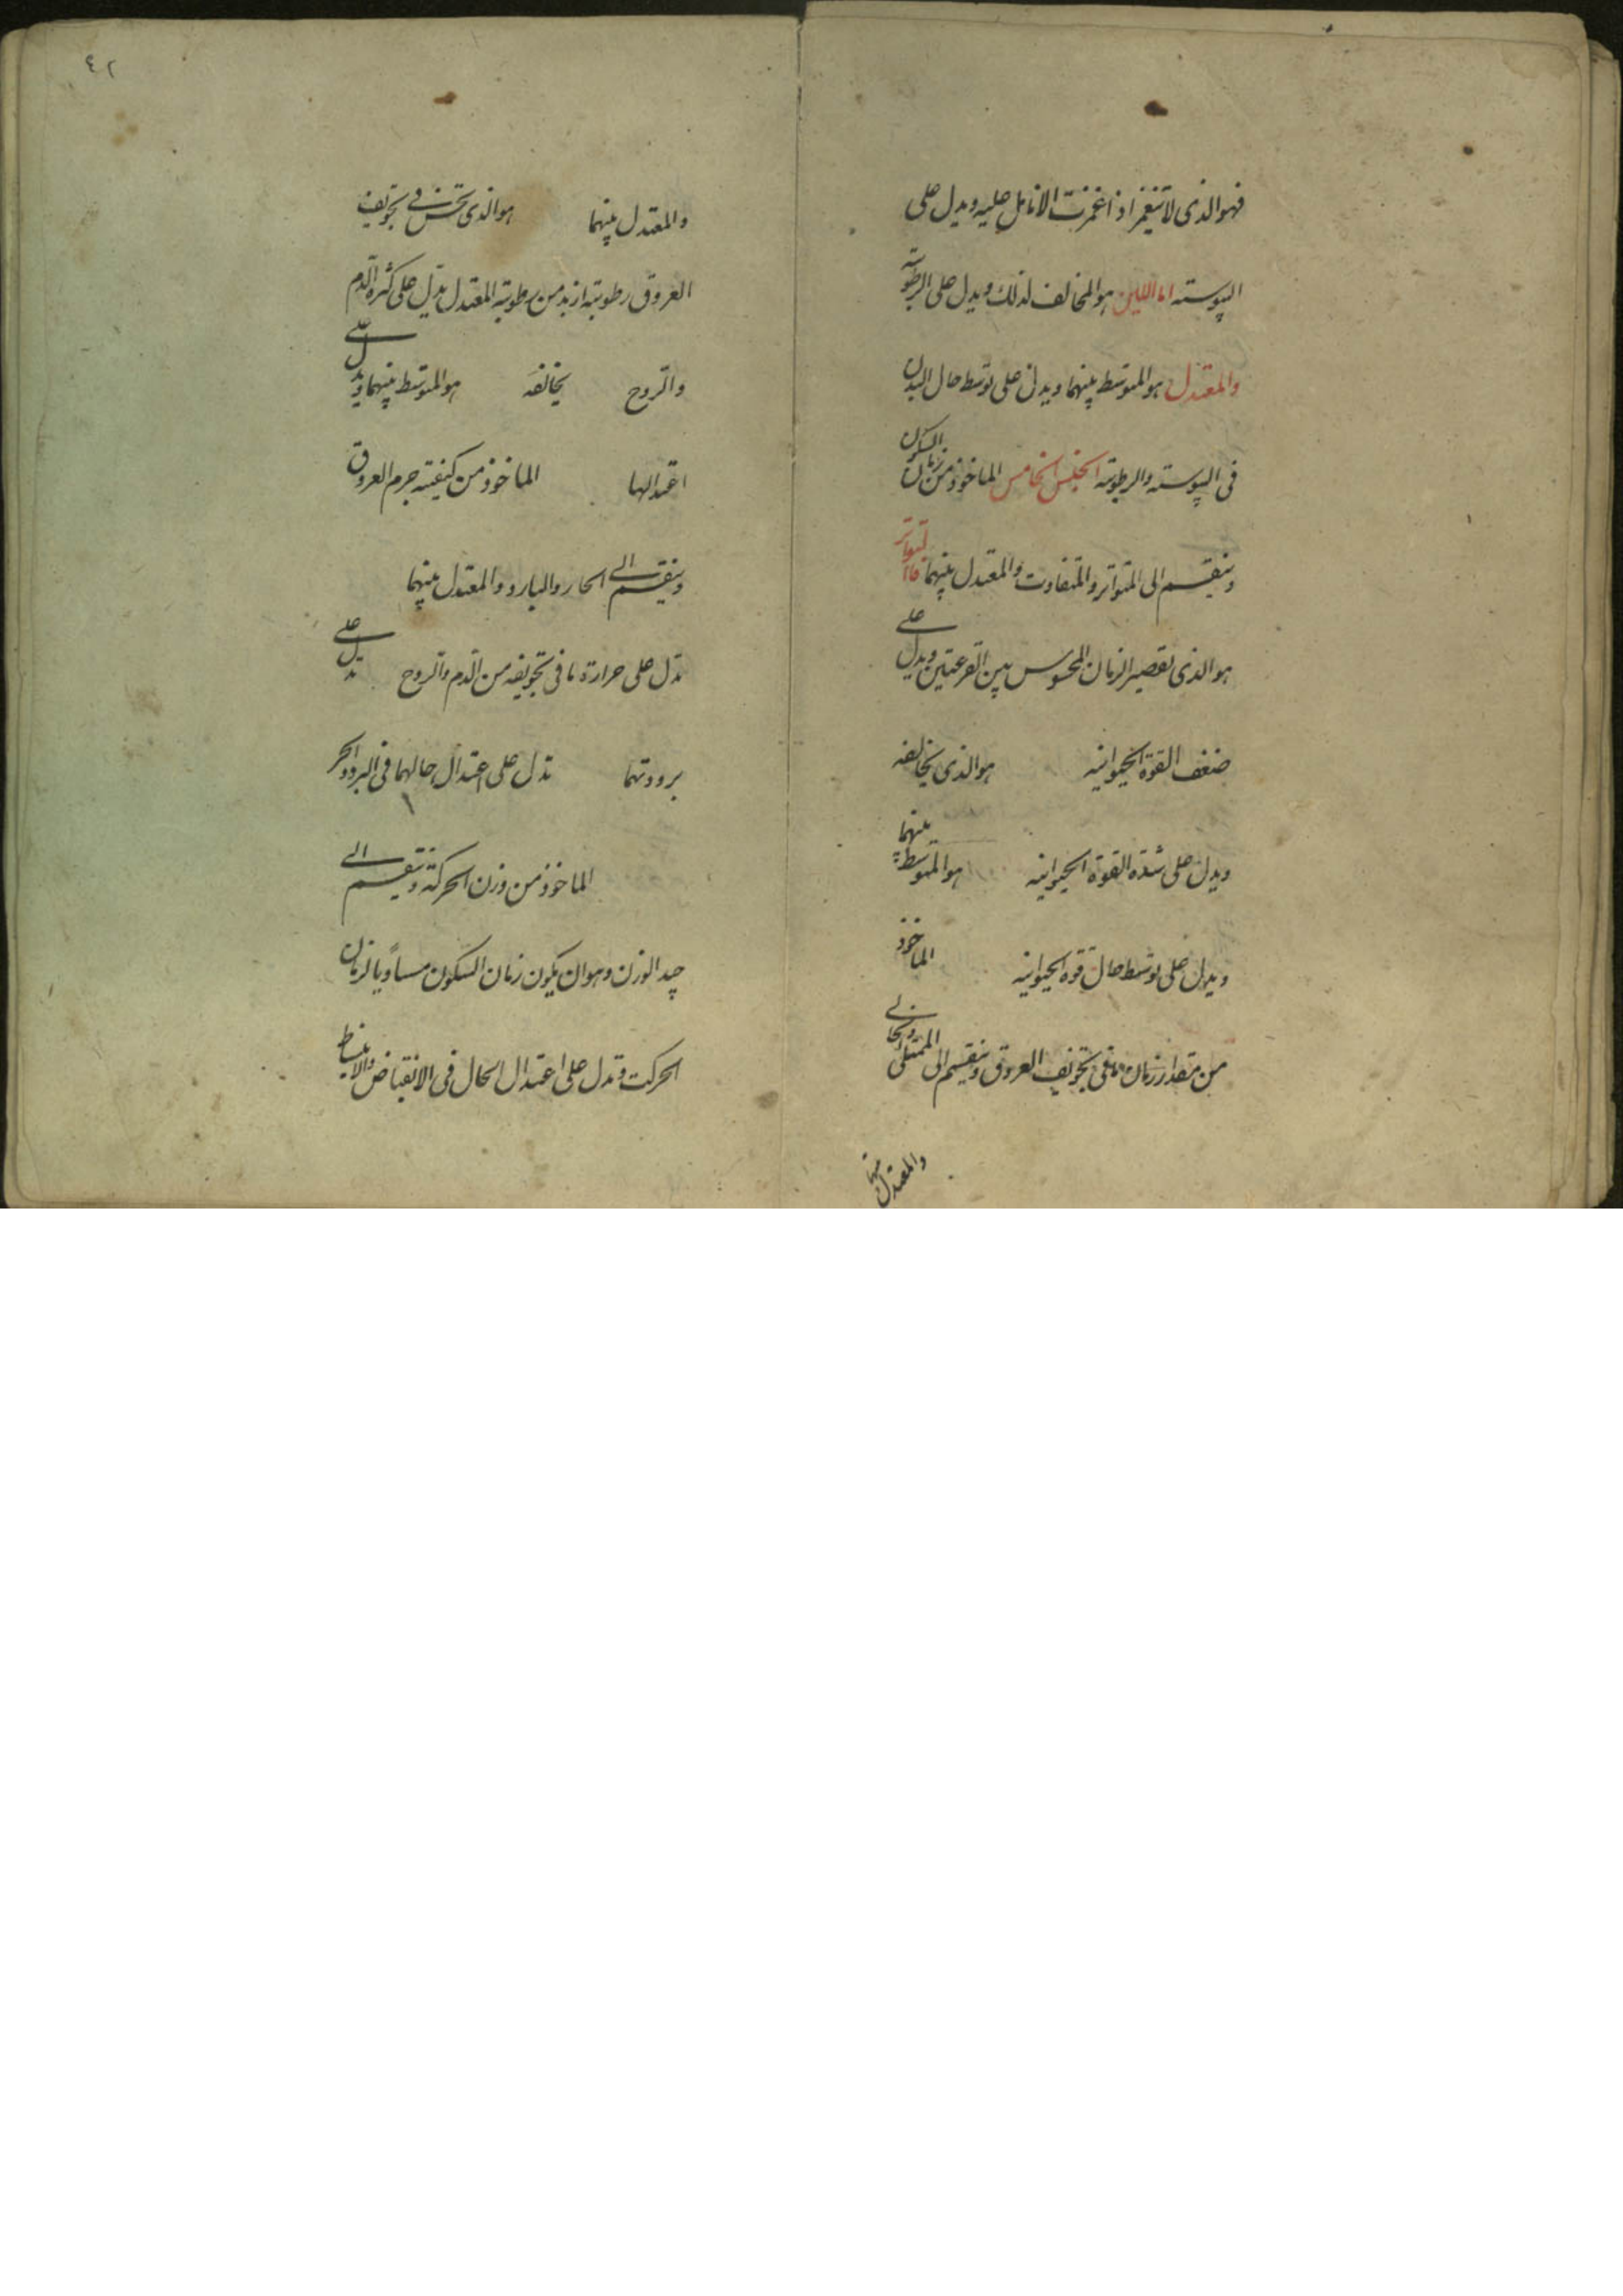 فهو الذى لا تنغمز اذا غمزت الانامل عليه ويدل على
اليبوسته اما اللين هو المخالف لذلك ويدل على الرطوبته
والمعتدل هو المتوسط بينهما ويدل على توسط حال البدن
فى اليبوسته والرطوبته الجنس الخامس الماخوذ من زمان السكون
وينقسم الى المتواتر والمتفاوت والمعتدل بينهما فاالمتواتر
هو الذى لقصير الزمان المحسوس بين القرعتين ويدل على
ضعف القوة الحيوانيه هو الذى يخالفه
ويدل على شدة القوة الحيوانيه هو المتوسط بينهما
ويدل على توسط حال قوة الحيوانيه الماخوذ
من مقدار زمان ما فى تجويف العروق وينقسم الى الممتلى والخالى
والمعتدل بينهما
٤٢
والمعتدل بينهما هو الذى تحس فى تجويف
العروق رطوبته ازيد من رطوبته المعتدل تدل على كثرة الدم
والروح يخالفه هو المتوسط بينهما ويدل على
اعتدالها الماخوذ من كيفيته جرم العروق
وينقسم الى الحار والبارد والمعتدل بينهما
تدل على حرارة ما فى تجويفه من الدم والروح تدل على
برودتهما تدل على اعتدال حالهما فى البرد والحر
الماخوذ من وزن الحركته وتنقسم الى
جيد الوزن وهو ان يكون زمان السكون مساويا لزمان
الحركت وتدل على اعتدال الحال فى الانقباض والانبساط